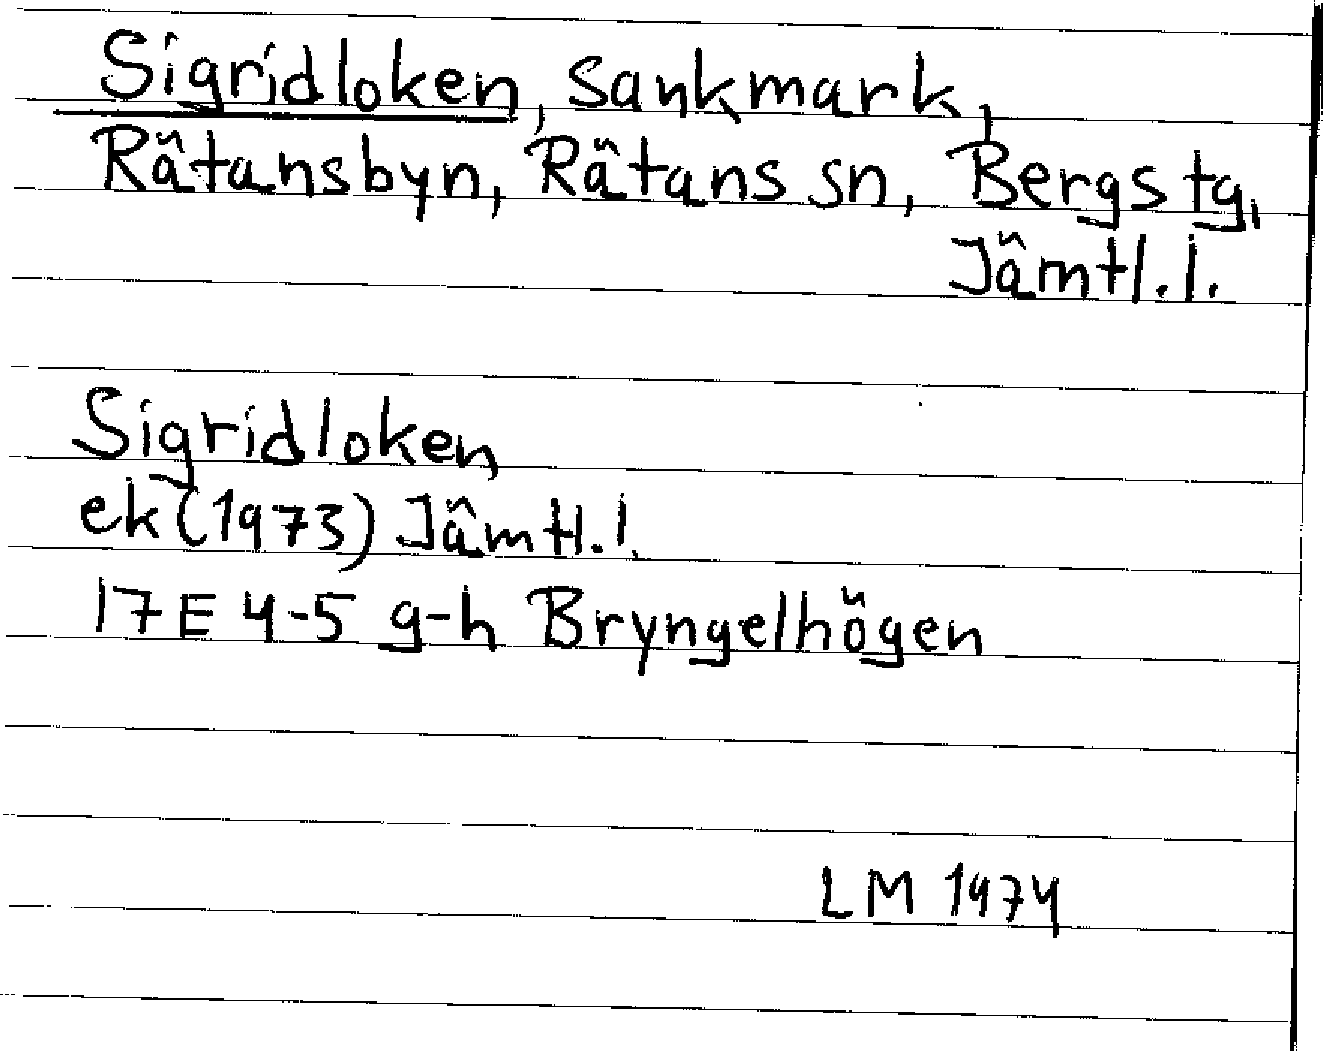 Sigridloken, sankmark,
Rätansbyn, Rätans sn, Bergs tg,
Jämtl.l.
Sigridloken
ek (1973) Jämtl.l.
17E 4-5 g-h Bryngelhögen
LM 1974